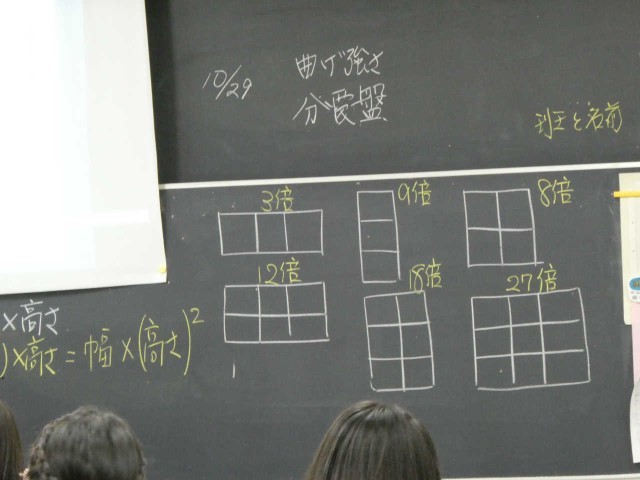 10/29
曲げ強さ
分電盤
班と名前
3倍
9倍
8倍
12倍
18倍
27倍
×高さ
)×高さ=幅×(高さ)²